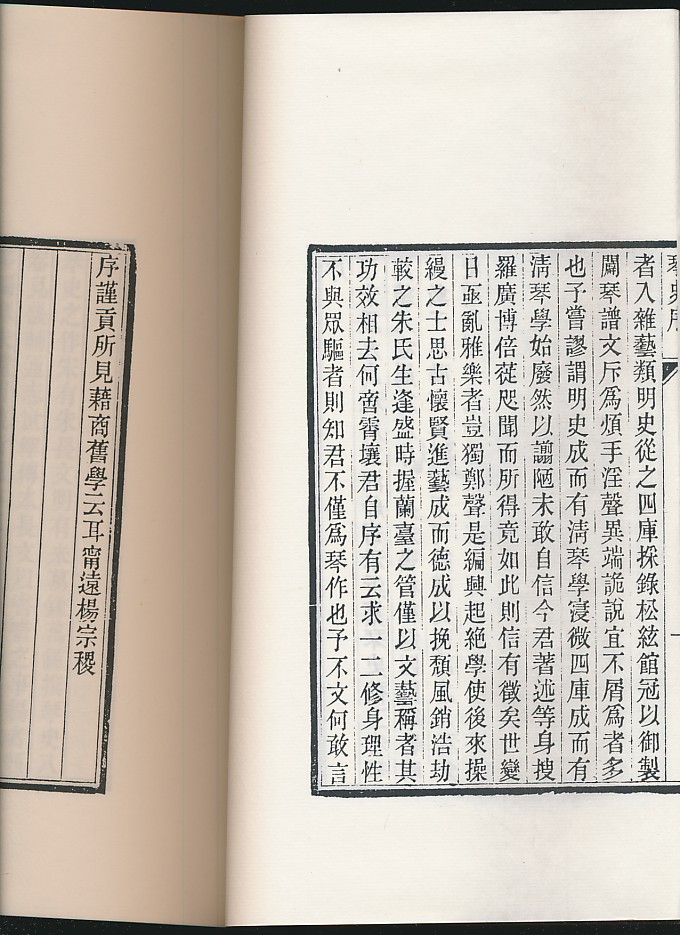 琴史序
者入雜藝類明史從之四庫採錄松絃館冠以御製
闢琴譜文斥為煩手淫聲異端詭說宜不屑為者多
也予嘗謬謂明史成而有淸琴學寖微四庫成而有
淸琴學始廢然以謭陋未敢自信今君著述等身搜
羅廣博倍蓰咫聞而所得竟如此則信有徵矣世變
日亟亂雅樂者豈獨鄭聲是編興起絕學使後來操
縵之士思古懷賢進藝成而德成以挽頹風銷浩劫
較之朱氏生逢盛時握蘭臺之管僅以文藝稱者其
功效相去何啻霄壤君自序有云求一二修身理性
不與眾驅者則知君不僅為琴作也予不文何敢言
序謹貢所見藉商舊學云耳甯遠楊宗稷